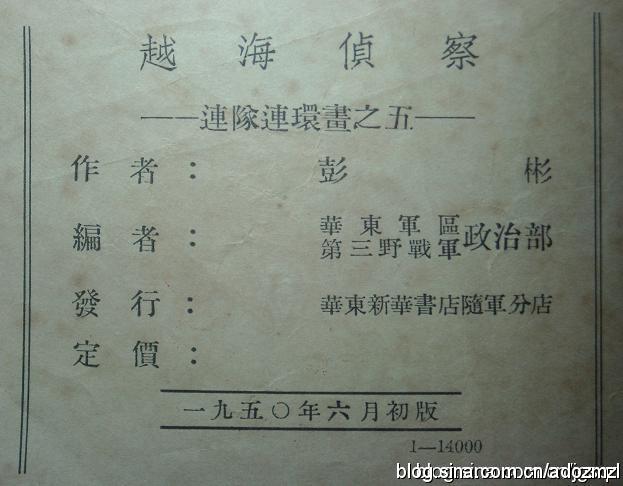 越海偵察
——連隊連環畫之五——
作者：彭彬
編者：華東軍區第三野戰軍政治部
發行：華東新華書店隨軍分店
定價：
一九五〇年六月初版
1—14000